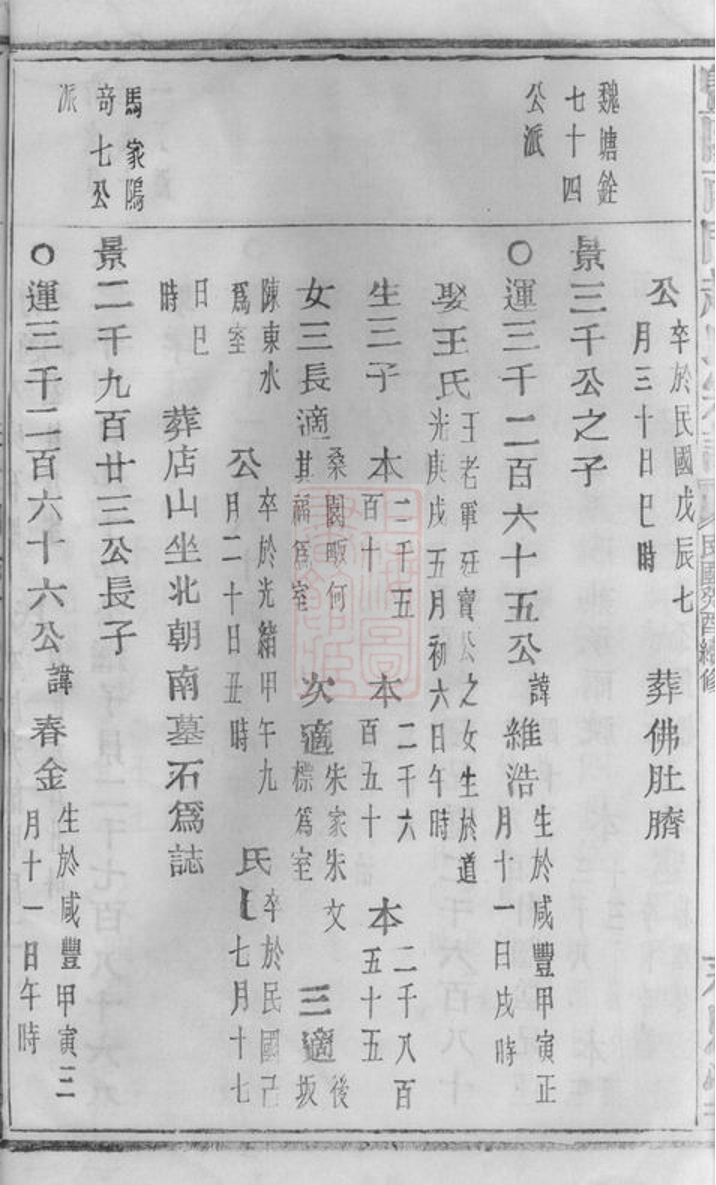 民國癸酉續修
公 卒於民國戊辰七月三十日巳時 葬佛肚臍
魏塘銓七十四公派
景三千公之子
○運三千二百六十五公 諱維浩 生於咸豐甲寅正月十一日戌時
娶王氏 王老軍廷寶公之女生於道光庚戌五月初六日午時
生三子 本二千五百十 本二千六百五十 本二千八百五十五
女三長適桑園畈何其福爲室 次適朱家朱文標爲室 三適後坂陳東水爲室
公卒於光緒甲午九月二十日丑時 氏卒於民國己巳七月十七日巳時
葬店山坐北朝南墓石爲誌
馬家隝奇七公派
景二千九百廿三公長子
○運三千二百六十六公 諱春金 生於咸豐甲寅三月十一日午時